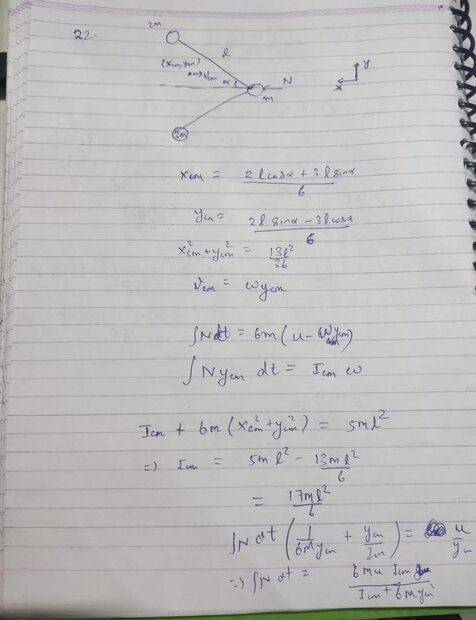 22.
2m
l
(xcm, ycm)
vcm α
N
m
y
x
3m
xcm = (2l cosα + 3l sinα)/6
ycm = (2l sinα - 3l cosα)/6
x²cm + y²cm = 13l²/36
vcm = ωycm
∫Ndt = 6m(u - ωycm)
∫Nycm dt = Icm ω
Icm + 6m(x²cm + y²cm) = 5ml²
=> Icm = 5ml² - 13ml²/6
= 17ml²/6
∫Ndt (1/6mycm + ycm/Icm) = u/ycm
=> ∫Ndt = 6mu Icm / Icm + 6my²cm